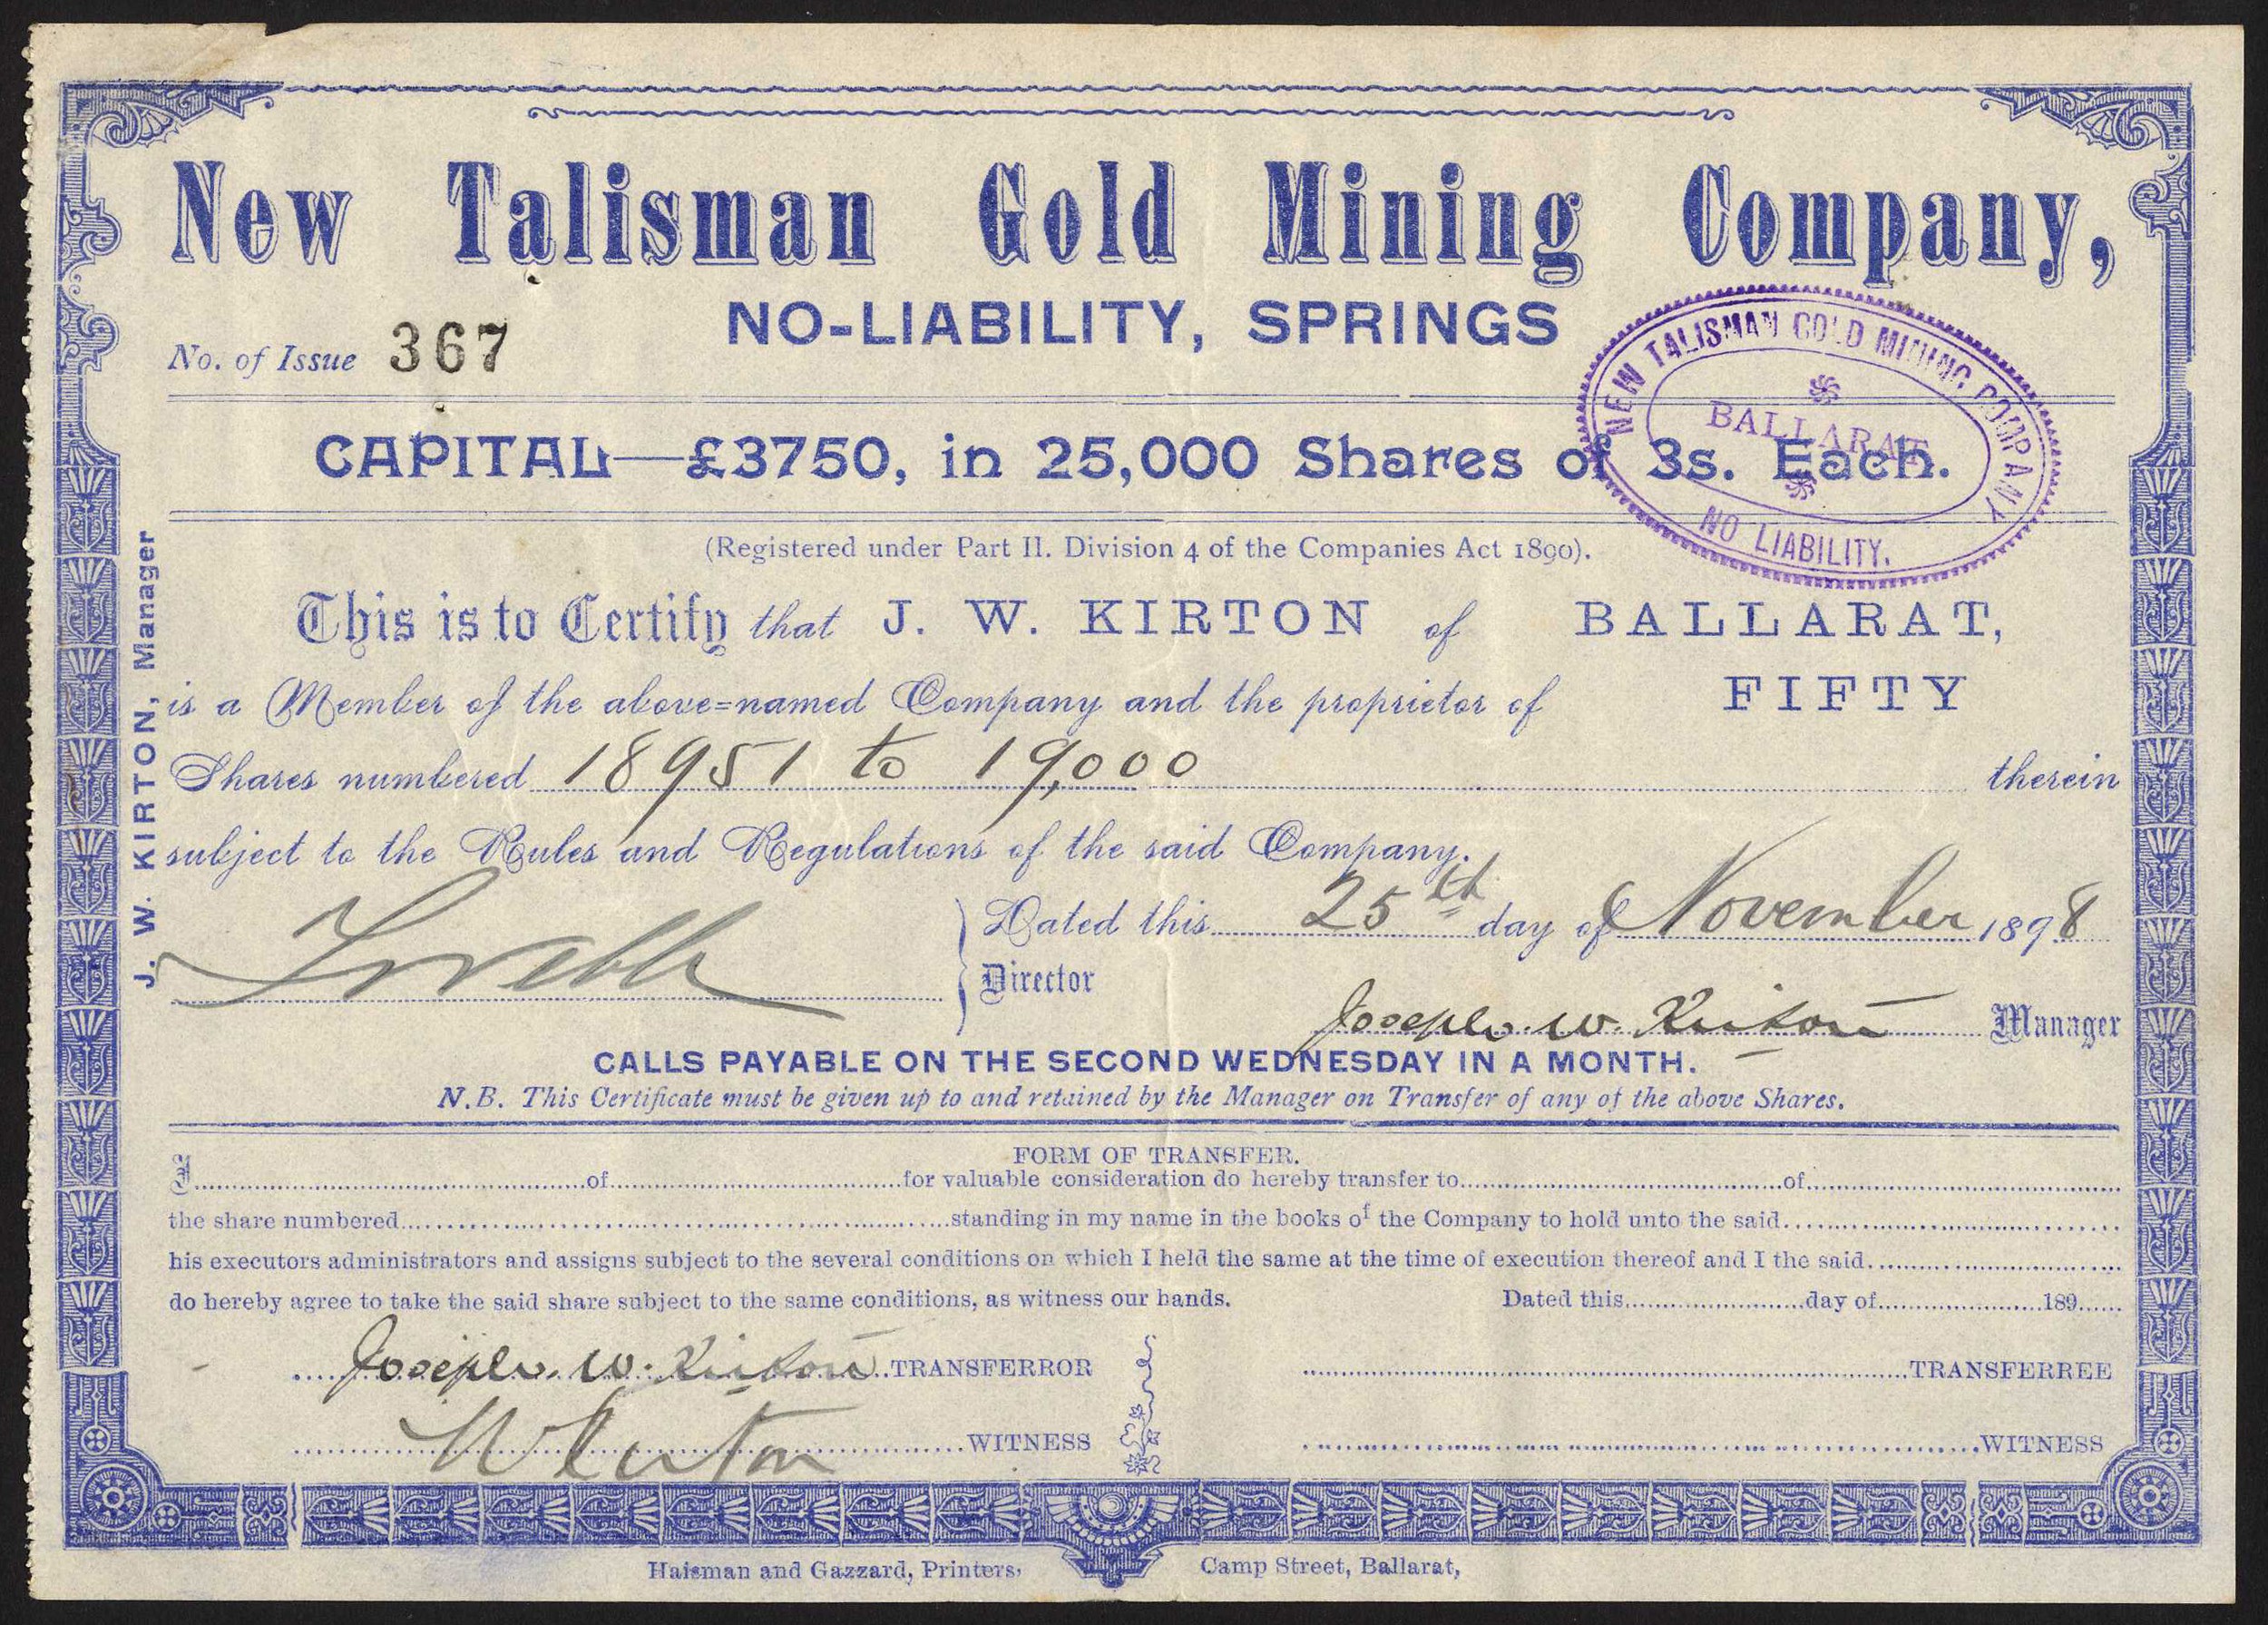 New Talisman Gold Mining Company,
NO-LIABILITY, SPRINGS
No. of Issue 367
NEW TALISMAN GOLD MINING COMPANY
BALLARAT
NO LIABILITY.
CAPITAL—£3750, in 25,000 Shares of 3s. Each.
(Registered under Part II. Division 4 of the Companies Act 1890).
J. W. KIRTON, Manager
This is to Certify that J. W. KIRTON of BALLARAT,
is a Member of the above=named Company and the proprietor of FIFTY
Shares numbered 18951 to 19,000 therein
subject to the Rules and Regulations of the said Company.
Dated this 25th day of November 1898
Director
Joseph. W. Kirton Manager
CALLS PAYABLE ON THE SECOND WEDNESDAY IN A MONTH.
N.B. This Certificate must be given up to and retained by the Manager on Transfer of any of the above Shares.
FORM OF TRANSFER.
I of for valuable consideration do hereby transfer to of
the share numbered standing in my name in the books of the Company to hold unto the said
his executors administrators and assigns subject to the several conditions on which I held the same at the time of execution thereof and I the said
do hereby agree to take the said share subject to the same conditions, as witness our hands. Dated this day of 189
Joseph. W. Kirton TRANSFERROR TRANSFERREE
WITNESS WITNESS
Haisman and Gazzard, Printers, Camp Street, Ballarat,